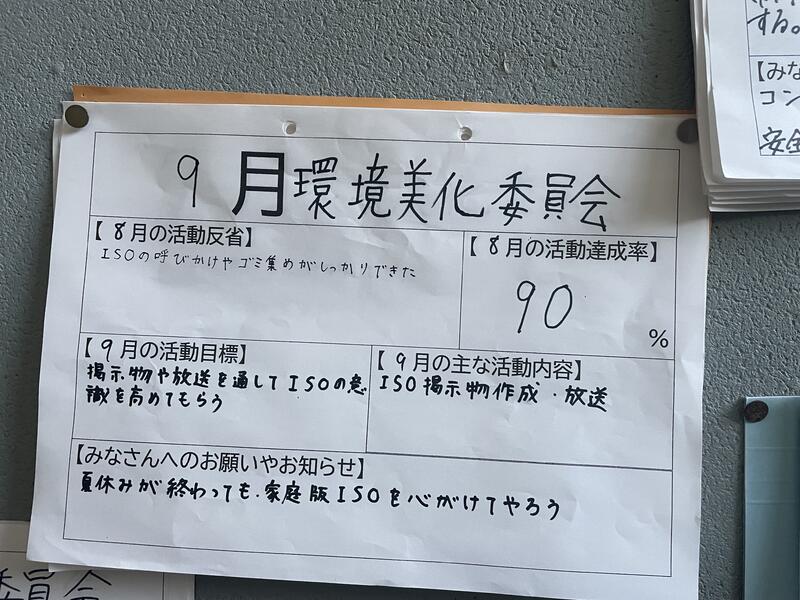 9月環境美化委員会
【8月の活動反省】
ISOの呼びかけやゴミ集めがしっかりできた
【8月の活動達成率】
90
%
【9月の活動目標】
掲示物や放送を通してISOの意
識を高めてもらう
【9月の主な活動内容】
ISO掲示物作成・放送
【みなさんへのお願いやお知らせ】
夏休みが終わっても、家庭版ISOを心がけてやろう
する。
【みな
コン
安全
委員会